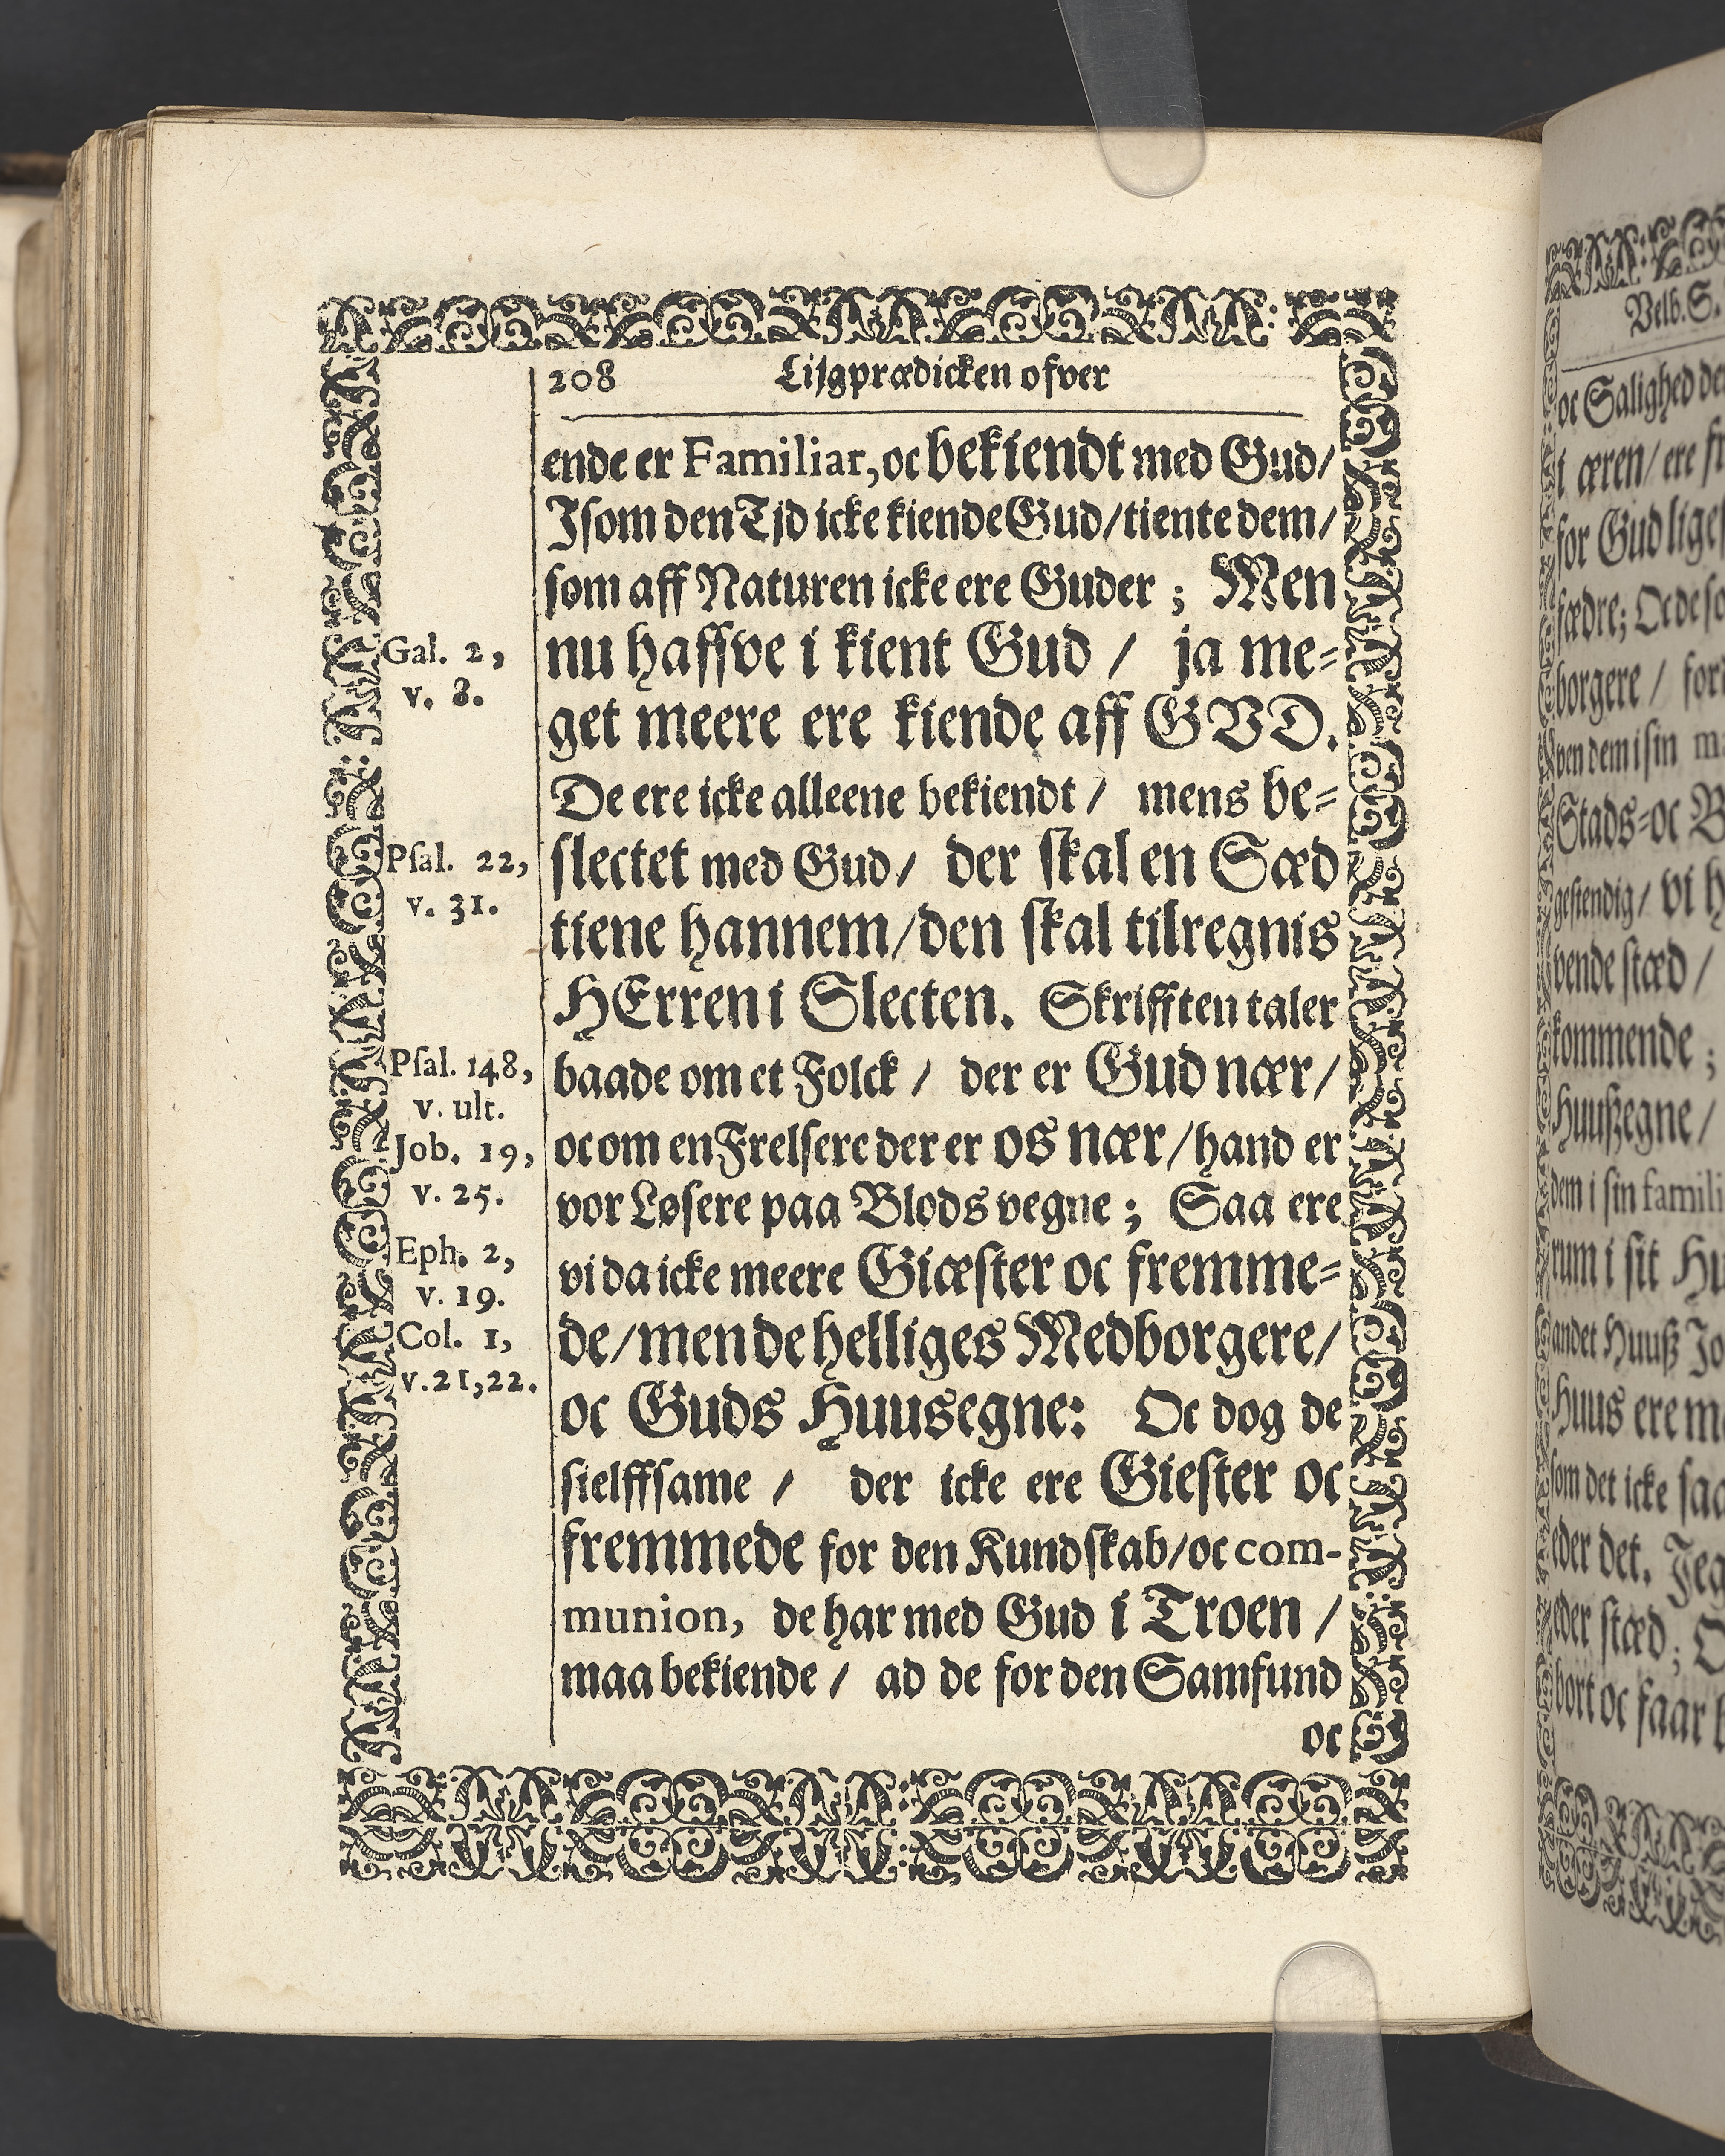 208 Lijgprædicken ofver
ende er Familiar, oc bekiendt med Gud/
I som den Tjd icke kiende Gud/ tiente dem/
som aff Naturen icke ere Guder; Men
nu haffve i kient Gud / ja me-
get meere ere kiende aff GVD.
De ere icke alleene bekiendt / mens be-
slectet med Gud/ der skal en Sæd
tiene hannem/ den skal tilregnis
HErren i Slecten. Skrifften taler
baade om et Folck / der er Gud nær/
oc om en Frelsere der er os nær/ hand er
vor Løsere paa Blods vegne; Saa ere
vi da icke meere Giæster oc fremme-
de/ men de helliges Medborgere/
oc Guds Huusegne: Oc dog de
sielffsame / der icke ere Giester oc
fremmede for den Kundskab/ oc com-
munion, de har med Gud i Troen /
maa bekiende / ad de for den Samfund
oc
Gal. 2,
v. 8.
Psal. 22,
v. 31.
Psal. 148,
v. ult.
Job. 19,
v. 25.
Eph. 2,
v. 19.
Col. 1,
v. 21, 22.
Velb. S.
oc Salighed
i æren/ ere
for Gud
fædre;
borgere /
ven dem i sin
Stads-oc
gestendig/ vi
vende stæd /
kommende ;
Huußegne /
dem i sin
rum i sit
andet Huuß
Huus ere
som det icke
eder det. Jeg
eder stæd;
bort oc faar